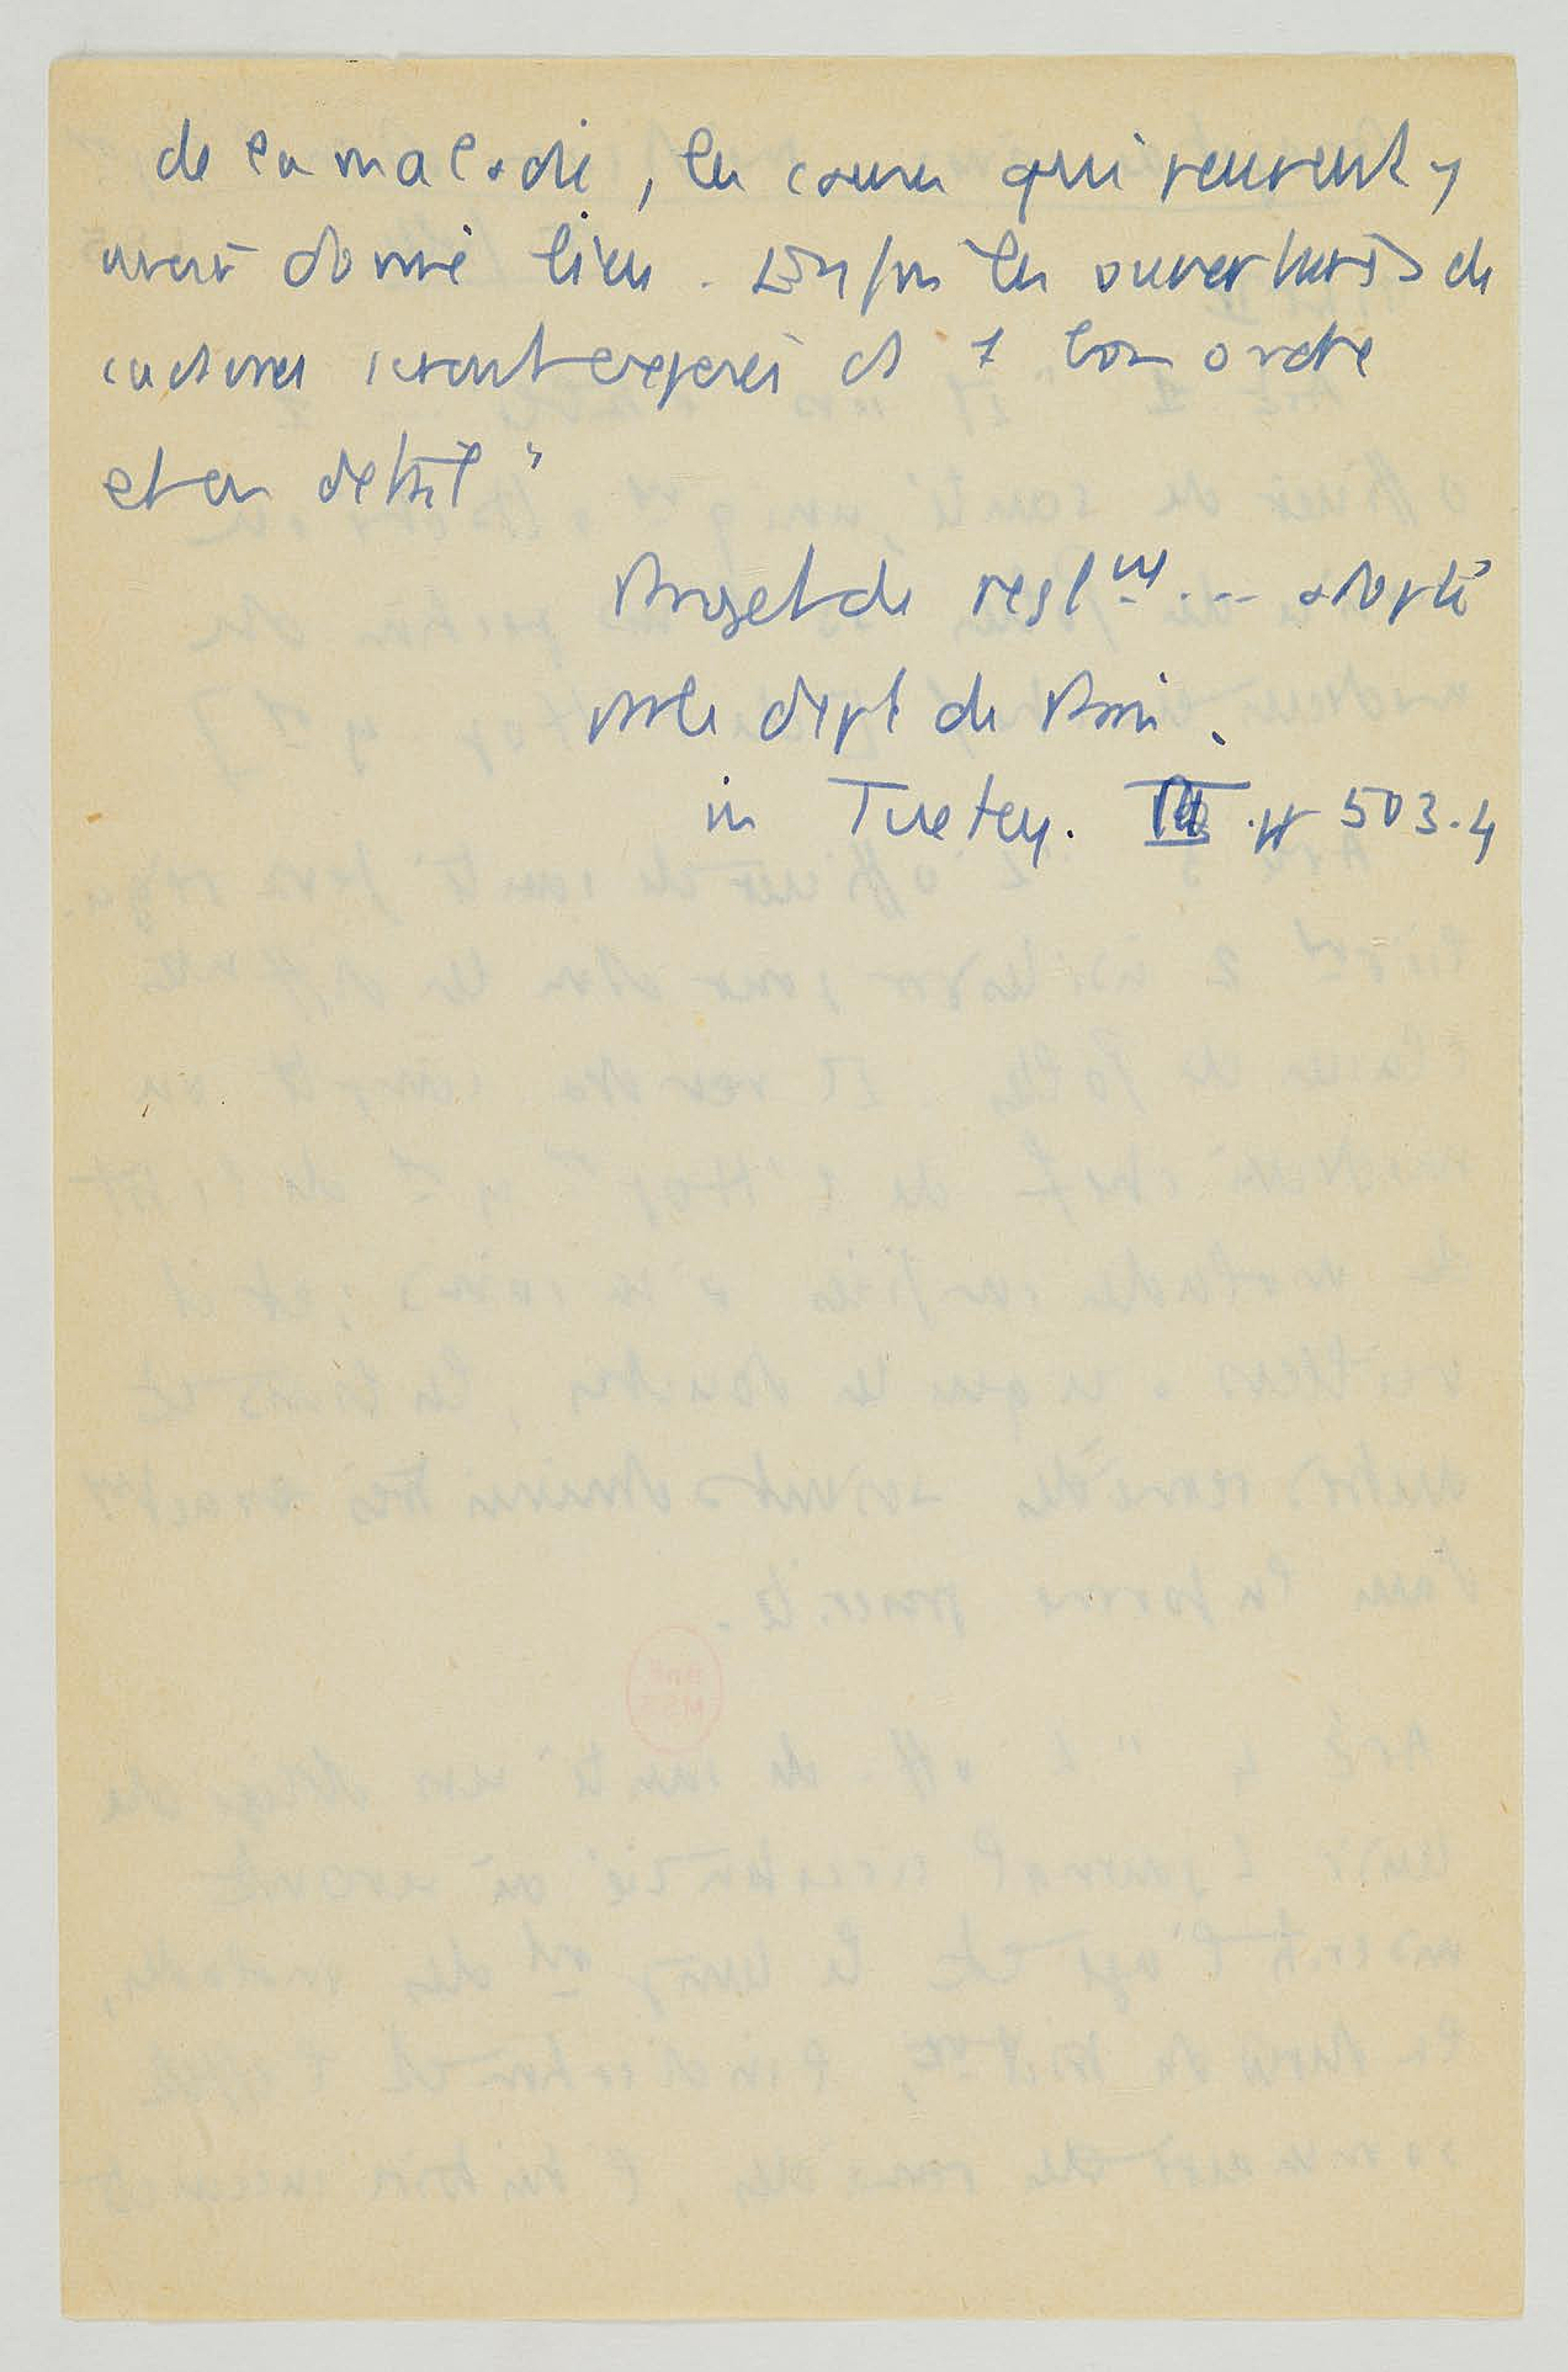 de la maladie, les causes qui peuvent y
avoir donné lieu. Enfin les ouvertures de
cadavres seront exposées ds 1 bon ordre
et en détail"
Projet de regl nt .... adopté
par le dept de Paris.
in Tuetey. III. p 503.4